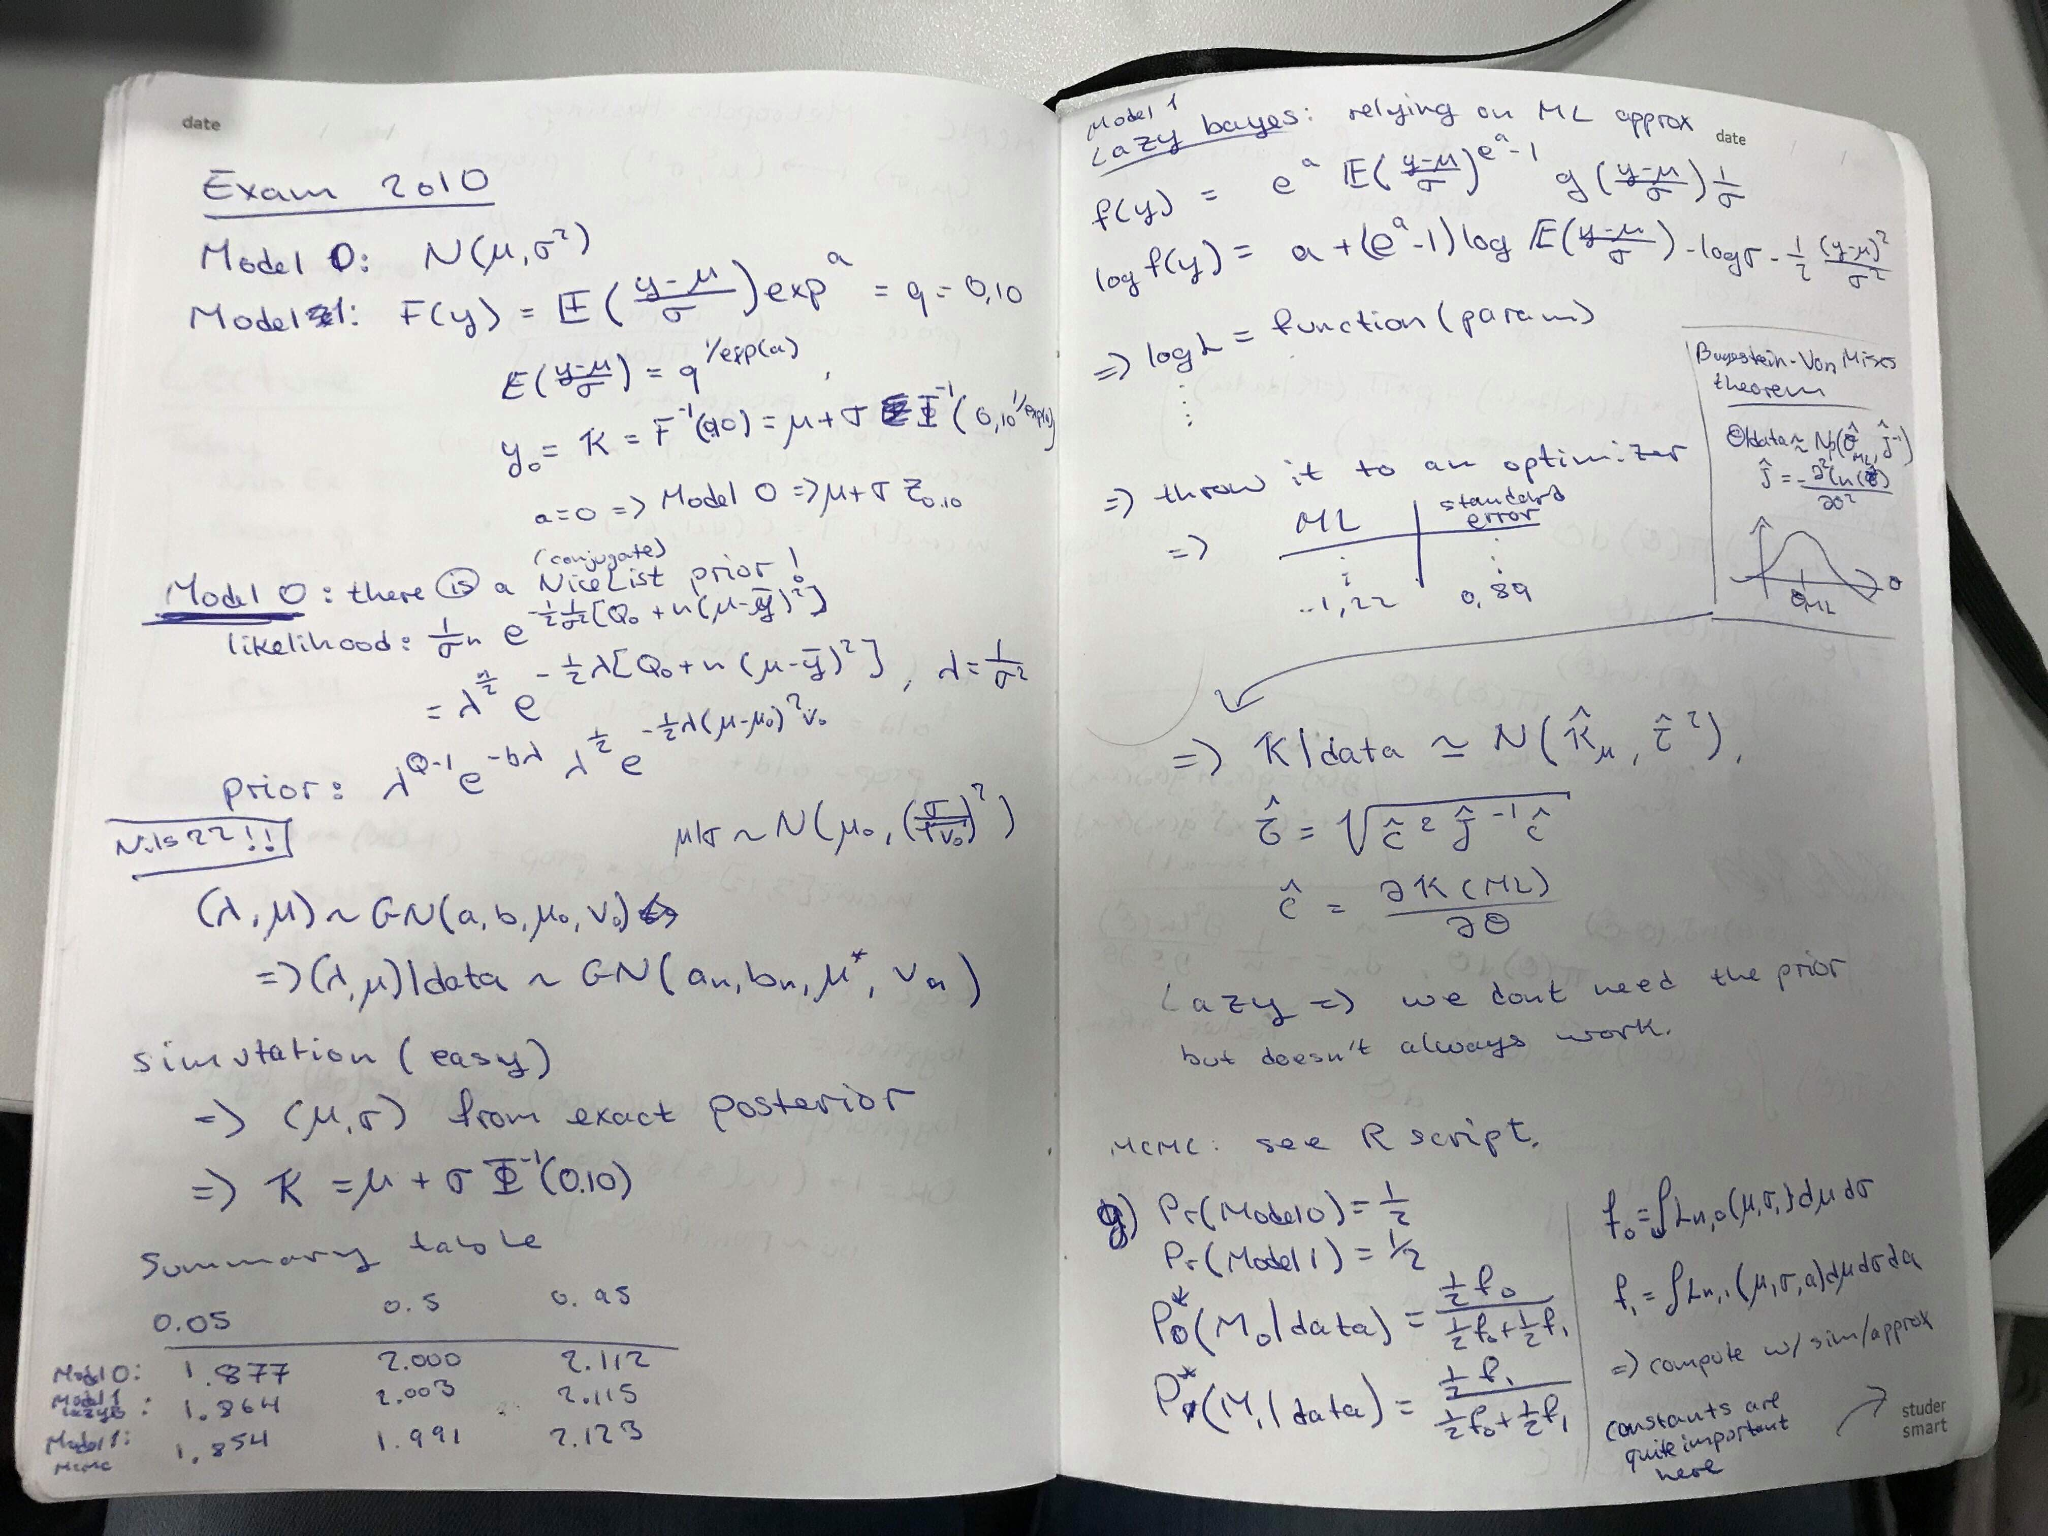 date
Exam 2010
Model 0: N(μ,σ²)
Model 1: F(y) = Φ((y-μ)/σ)^exp a = q = 0,10
Φ((y-μ)/σ) = q^(1/exp(a)),
y₀ = K = F⁻¹(q,0) = μ + σ Φ⁻¹(0,10^(1/exp(a)))
a=0 => Model 0 => μ+σ z₀.₁₀
(conjugate)
Model 0: there is a NiceList prior!
likelihood: 1/σⁿ e^(-½ 1/σ² [Q₀ + n(μ-ȳ)²])
= λ^(n/2) e^(-½λ[Q₀+n(μ-ȳ)²]), λ = 1/σ²
prior: λ^(a-1) e^(-bλ) λ^(½) e^(-½λ(μ-μ₀)²v₀)
Nils 22!!
μ|σ ~ N(μ₀, (σ/√v₀)²)
(λ,μ) ~ GN(a,b,μ₀,v₀) ⇔
=> (λ,μ)|data ~ GN(aₙ,bₙ,μ*,vₙ)
simutation (easy)
=> (μ,σ) from exact posterior
=> K = μ + σ Φ⁻¹(0.10)
Summary table
0.05 0.5 0.95
Model 0: 1.877 2.000 2.112
Model 1 lazyB: 1.864 2.003 2.115
Model 1: MCMC 1.854 1.991 2.123
Model 1
Lazy bayes: relying on ML approx
date
f(y) = e^a Φ((y-μ)/σ)^(e^a-1) g((y-μ)/σ) 1/σ
log f(y) = a + (e^a-1) log Φ((y-μ)/σ) - logσ - ½ (y-μ)²/σ²
=> logL = function(param)
=> throw it to an optimizer
=> ML | standard error
-1,22 | 0,89
Bayestein-Von Mises
theorem
θ|data ≈ Np(θ̂_ML, Ĵ⁻¹)
Ĵ = -∂²ln(θ̂)/∂θ²
θ
θ̂ML
=> K|data ≃ N(K̂_μ, τ̂²),
τ̂ = √(ĉ² Ĵ⁻¹ ĉ)
ĉ = ∂K(ML)/∂θ
Lazy => we dont need the prior
but doesn't always work.
MCMC: see R script.
g) Pr(Model 0) = ½
Pr(Model 1) = ½
P₀*(M₀|data) = ½f₀ / (½f₀+½f₁)
P₁*(M₁|data) = ½f₁ / (½f₀+½f₁)
f₀ = ∫Lₙ,₀(μ,σ,)dμdσ
f₁ = ∫Lₙ,₁(μ,σ,a)dμdσda
=> compute w/ sim/approx
constants are
quite important
here
studer
smart